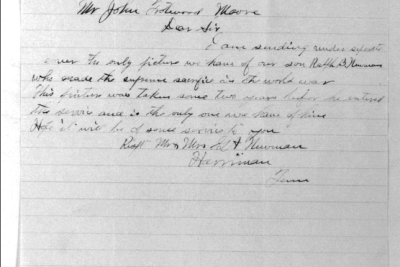 Mr John Trotwood Moore
Dear Sir
I am sending under seperate
cover the only picture we have of our son Ralph Newman
who made the supreme sacrifice in the world war
This picture was taken some two years before he entered
the service and is the only one we have of him
Hope it will be of some service to you
Respt Mr & Mrs Newman
Harriman
Tenn